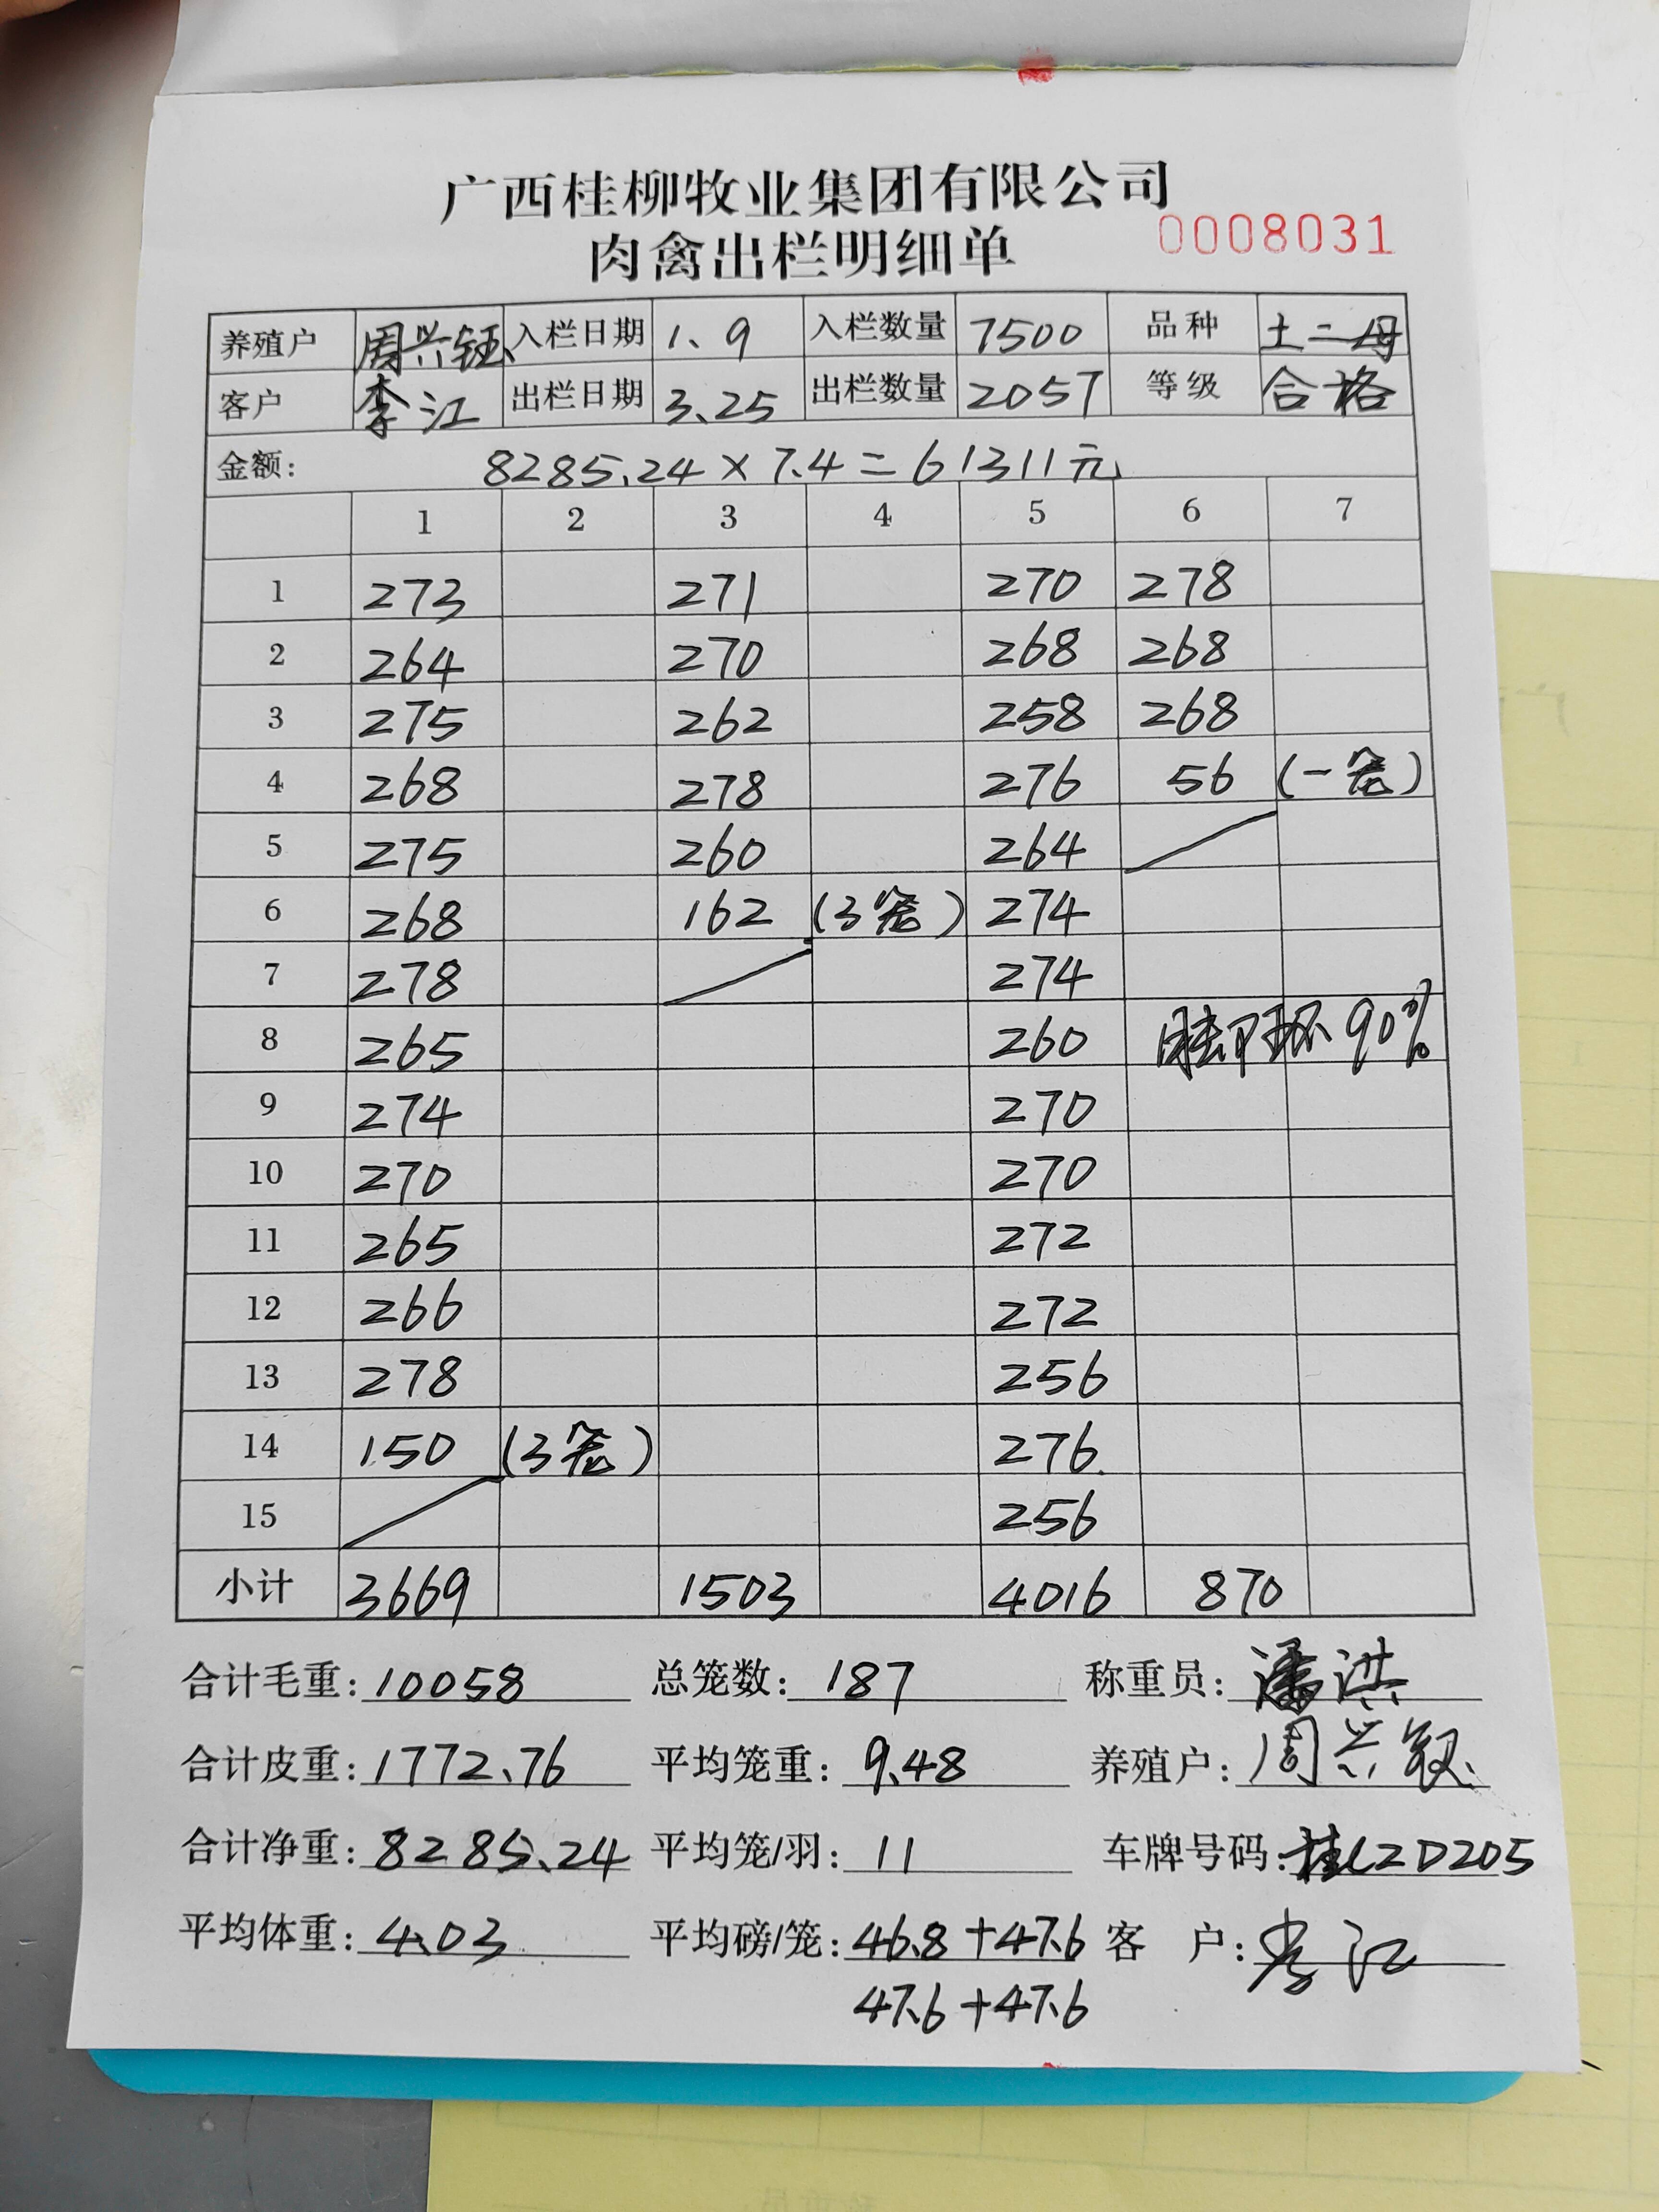 广西桂柳牧业集团有限公司
肉禽出栏明细单 0008031
养殖户 周兴钰 入栏日期 1、9 入栏数量 7500 品种 土二母
客户 李江 出栏日期 3、25 出栏数量 2057 等级 合格
金额: 8285.24×7.4=61311元
1 2 3 4 5 6 7
1 273 271 270 278
2 264 270 268 268
3 275 262 258 268
4 268 278 276 56 (一笼)
5 275 260 264
6 268 162 (3笼) 274
7 278 274
8 265 260 90%
9 274 270
10 270 270
11 265 272
12 266 272
13 278 256
14 150 (3笼) 276
15 256
小计 3669 1503 4016 870
合计毛重: 10058 总笼数: 187 称重员: 潘洪
合计皮重: 1772.76 平均笼重: 9.48 养殖户: 周兴钰
合计净重: 8285.24 平均笼/羽: 11 车牌号码: 桂CZD205
平均体重: 4.03 平均磅/笼: 46.8+47.6 客 户: 李江
47.6+47.6